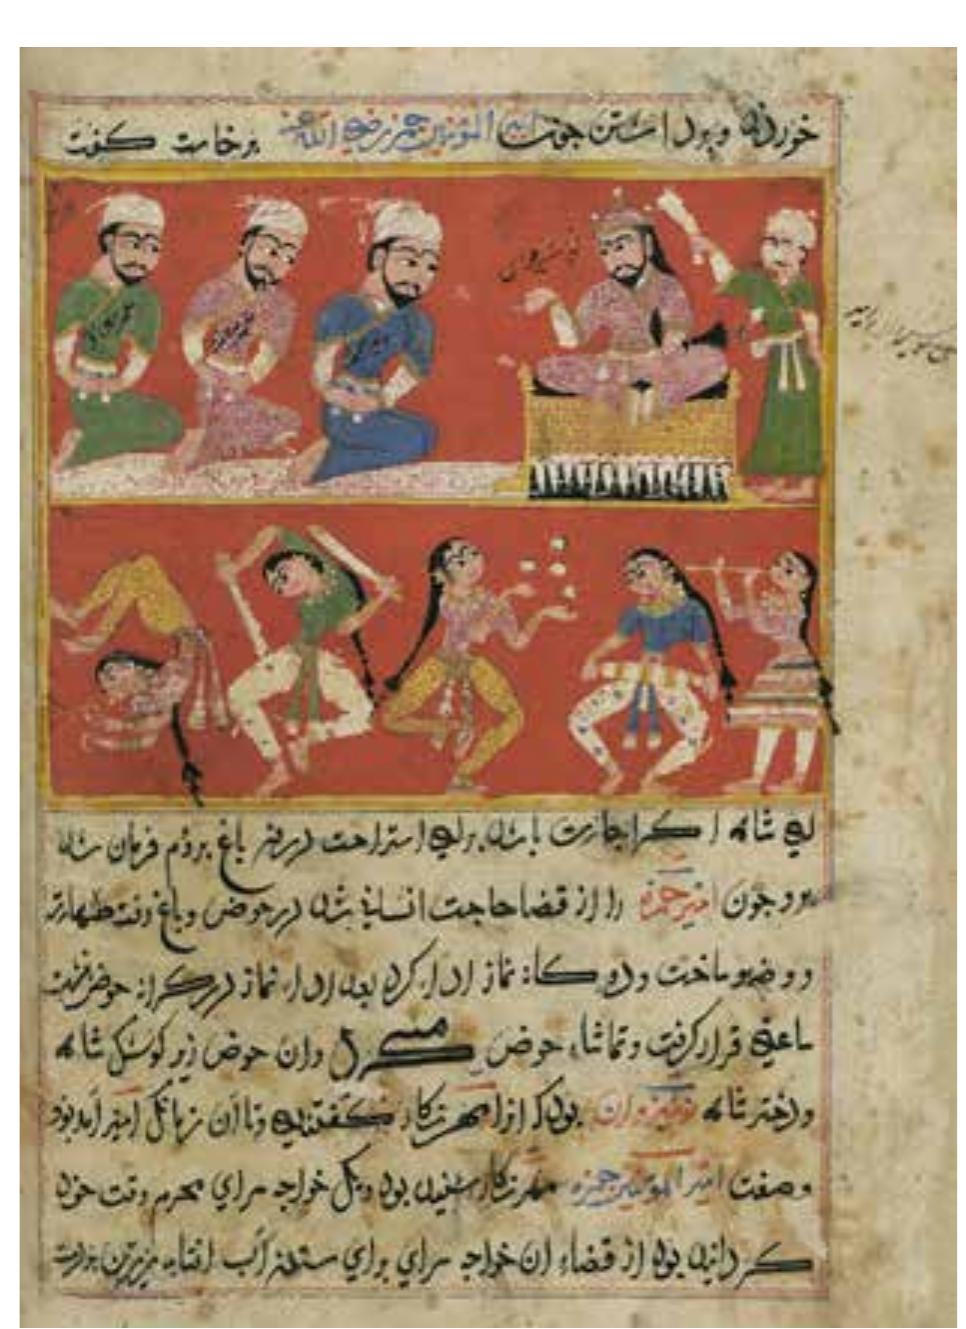 خوردند و بود اشتن جهت امیر المؤمنین حمزه رضی الله عنه برخاست گفت
نوشیروان
ای شاه اگر اجازت باشد برای استراحت درین باغ بروم فرمان شد
برو چون امیر حمزه را از قضا حاجت انسانیة شد در حوض و باغ رفت طهارت
و وضو ساخت و دوگانه نماز ادا کرد بعد ادا نماز در کرانه حوض
ساعتی قرار گرفت و تماشاء حوض می کرد و ان حوض زیر کوشک شاه
و دختر شاه نوشیروان بود که او را مهر نکار گفتندی و تا آن زمان که امیر آمد بود
وصفت امیر المؤمنین حمزه مهر نکار شنیده بود و یکی خواجه سرای محرم وقت خود
گردانیده بود از قضاء ان خواجه سرای برای ستدن آب افتابه